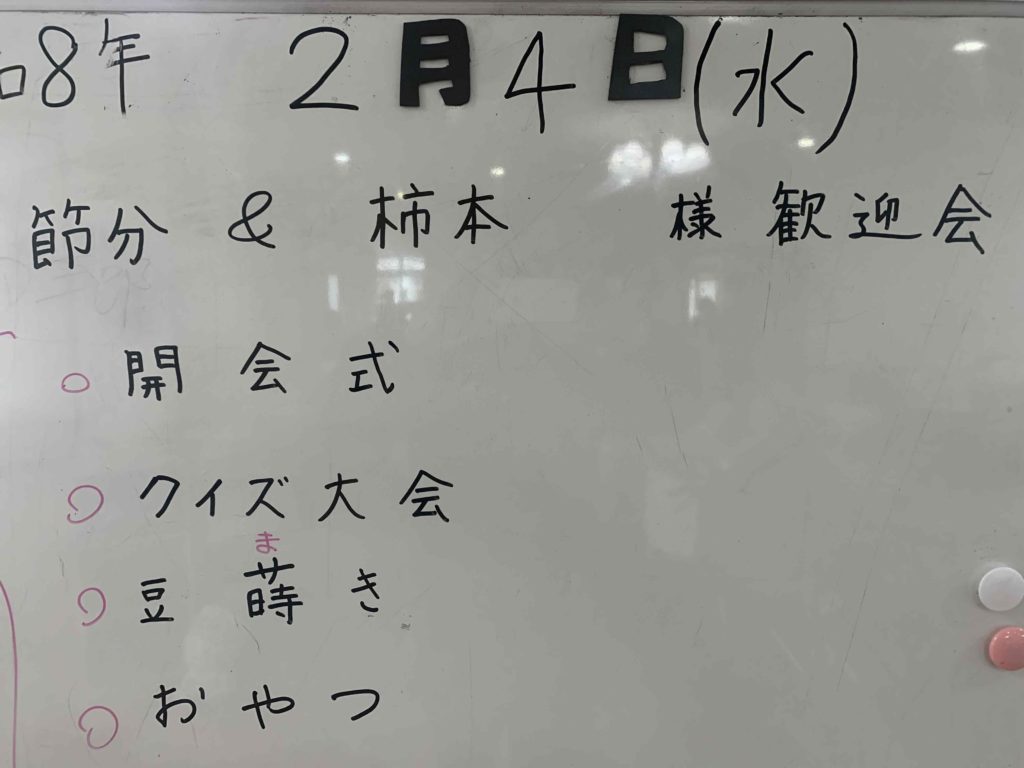 和8年 2月4日(水)
節分 & 柿本 様 歓迎会
○ 開会式
○ クイズ大会
ま
○ 豆蒔き
○ おやつ